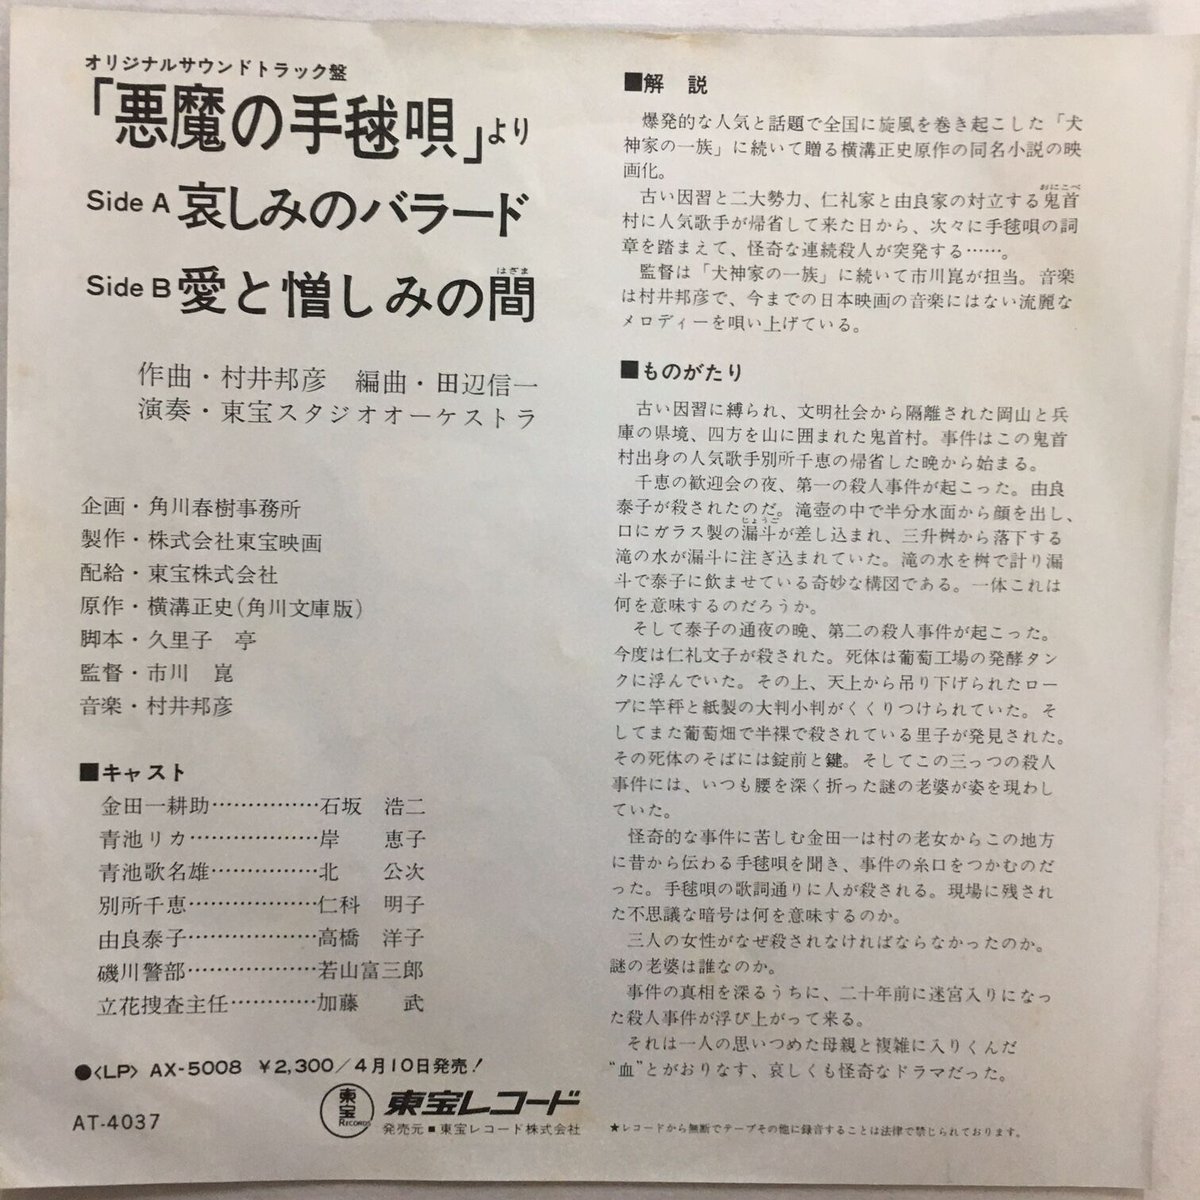 オリジナルサウンドトラック盤
「悪魔の手毬唄」より
Side A 哀しみのバラード
はざま
Side B 愛と憎しみの間
作曲・村井邦彦　編曲・田辺信一
演奏・東宝スタジオオーケストラ
企画・角川春樹事務所
製作・株式会社東宝映画
配給・東宝株式会社
原作・横溝正史(角川文庫版)
脚本・久里子　亭
監督・市川　崑
音楽・村井邦彦
■キャスト
金田一耕助……………石坂　浩二
青池リカ………………岸　　恵子
青池歌名雄……………北　　公次
別所千恵………………仁科　明子
由良泰子………………高橋　洋子
磯川警部………………若山富三郎
立花捜査主任…………加藤　　武
●〈LP〉AX-5008　¥2,300／4月10日発売！
AT-4037
東宝
RECORDS
東宝レコード
発売元■東宝レコード株式会社
■解　説
爆発的な人気と話題で全国に旋風を巻き起こした「犬
神家の一族」に続いて贈る横溝正史原作の同名小説の映
画化。
おにこべ
古い因習と二大勢力、仁礼家と由良家の対立する鬼首
村に人気歌手が帰省して来た日から、次々に手毬唄の詞
章を踏まえて、怪奇な連続殺人が突発する……。
監督は「犬神家の一族」に続いて市川崑が担当。音楽
は村井邦彦で、今までの日本映画の音楽にはない流麗な
メロディーを唄い上げている。
■ものがたり
古い因習に縛られ、文明社会から隔離された岡山と兵
庫の県境、四方を山に囲まれた鬼首村。事件はこの鬼首
村出身の人気歌手別所千恵の帰省した晩から始まる。
千恵の歓迎会の夜、第一の殺人事件が起こった。由良
泰子が殺されたのだ。滝壺の中で半分水面から顔を出し、
じょうご
口にガラス製の漏斗が差し込まれ、三升桝から落下する
滝の水が漏斗に注ぎ込まれていた。滝の水を桝で計り漏
斗で泰子に飲ませている奇妙な構図である。一体これは
何を意味するのだろうか。
そして泰子の通夜の晩、第二の殺人事件が起こった。
今度は仁礼文子が殺された。死体は葡萄工場の発酵タン
クに浮んでいた。その上、天上から吊り下げられたロー
プに竿秤と紙製の大判小判がくくりつけられていた。そ
してまた葡萄畑で半裸で殺されている里子が発見された。
その死体のそばには錠前と鍵。そしてこの三っつの殺人
事件には、いつも腰を深く折った謎の老婆が姿を現わし
ていた。
怪奇的な事件に苦しむ金田一は村の老女からこの地方
に昔から伝わる手毬唄を聞き、事件の糸口をつかむのだ
った。手毬唄の歌詞通りに人が殺される。現場に残され
た不思議な暗号は何を意味するのか。
三人の女性がなぜ殺されなければならなかったのか。
謎の老婆は誰なのか。
事件の真相を深るうちに、二十年前に迷宮入りになっ
た殺人事件が浮び上がって来る。
それは一人の思いつめた母親と複雑に入りくんだ
“血”とがおりなす、哀しくも怪奇なドラマだった。
★レコードから無断でテープその他に録音することは法律で禁じられております。